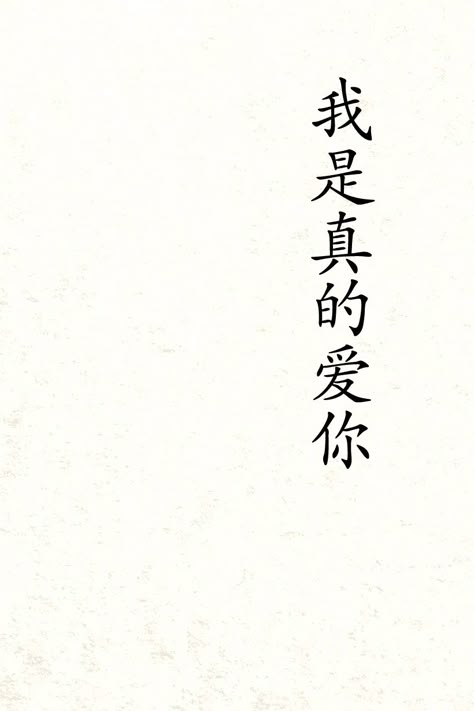 我是真的爱你